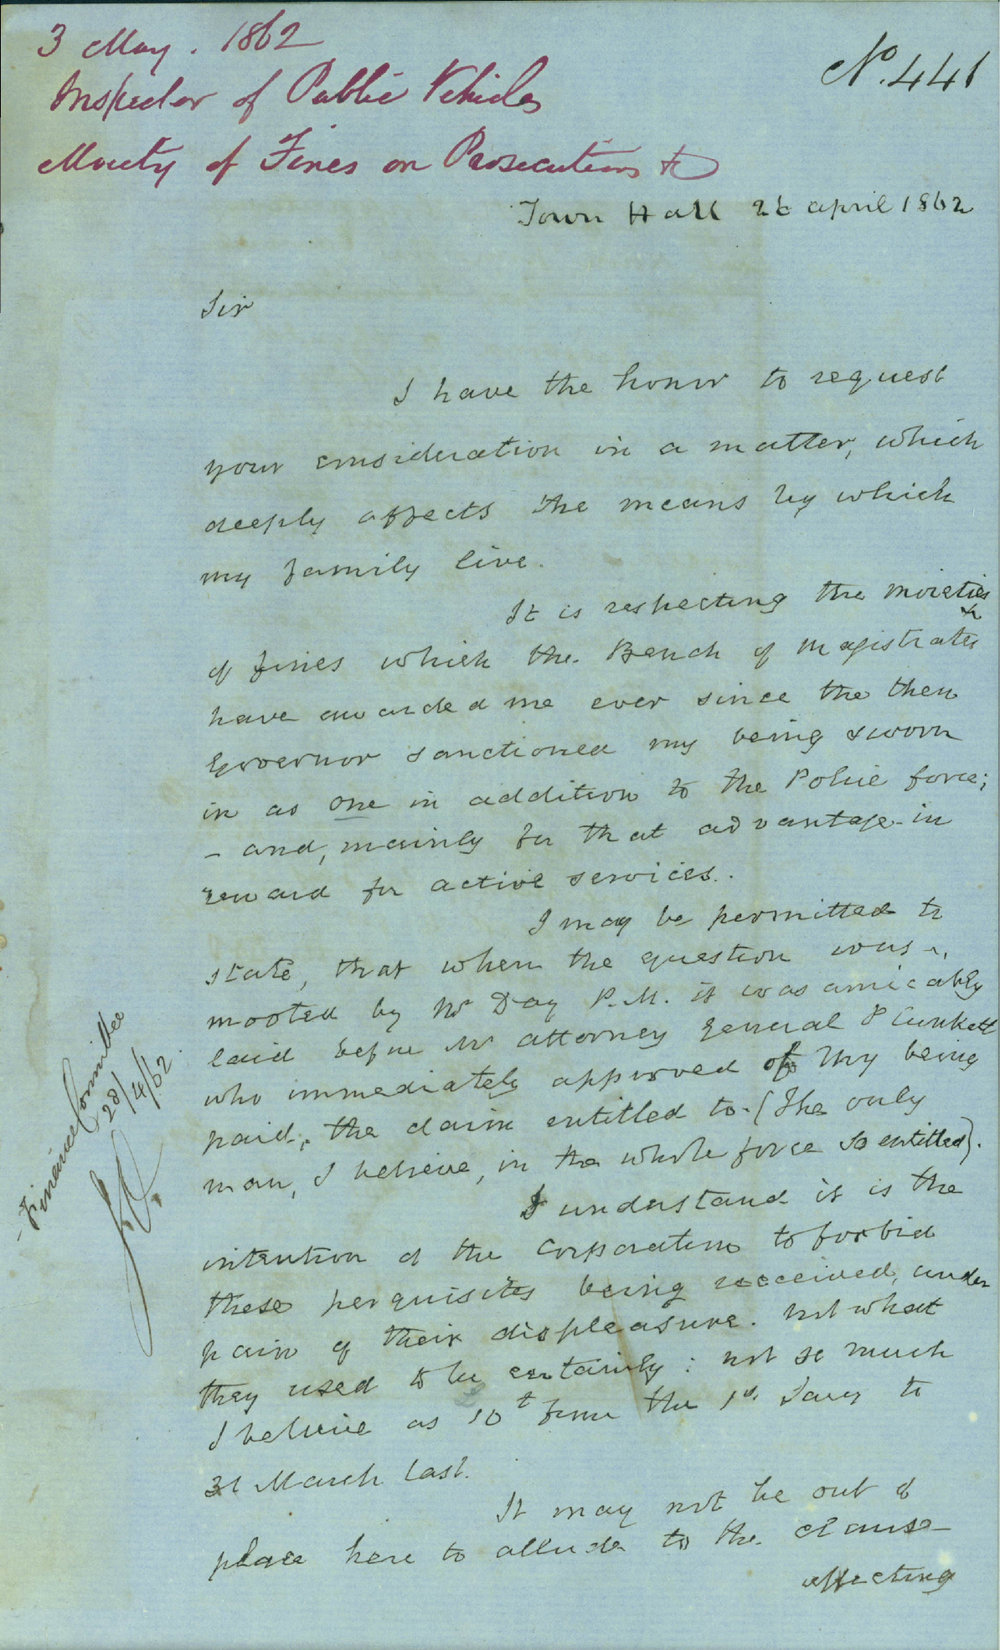 3 May. 1862
No. 441
Inspector of Public Vehicles
Moiety of Fines on Prosecutions &c
Town Hall 26 april 1862
Sir
I have the honor to request
your consideration in a matter, which
deeply affects the means by which
my family live.
It is respecting the moieties
of fines which the Bench of Magistrates
have awarded me ever since the then
Governor sanctioned my being sworn
in as one in addition to the Police force;
- and, mainly for that advantage in
reward for active services.
I may be permitted to
state, that when the question was
mooted by Mr Day P.M. it was amicably
laid before Mr attorney general Plunkett
who immediately approved of my being
paid, the claim entitled to. (The only
man, I believe, in the whole force so entitled).
I understand it is the
intention of the Corporation to forbid
these perquisites being received, under
pain of their displeasure. not what
they used to be certainly: not so much
I believe as from the 1st Jany to
31 March last.
It may not be out of
place here to allude to the clause
affecting
Finance Committee
28/4/62